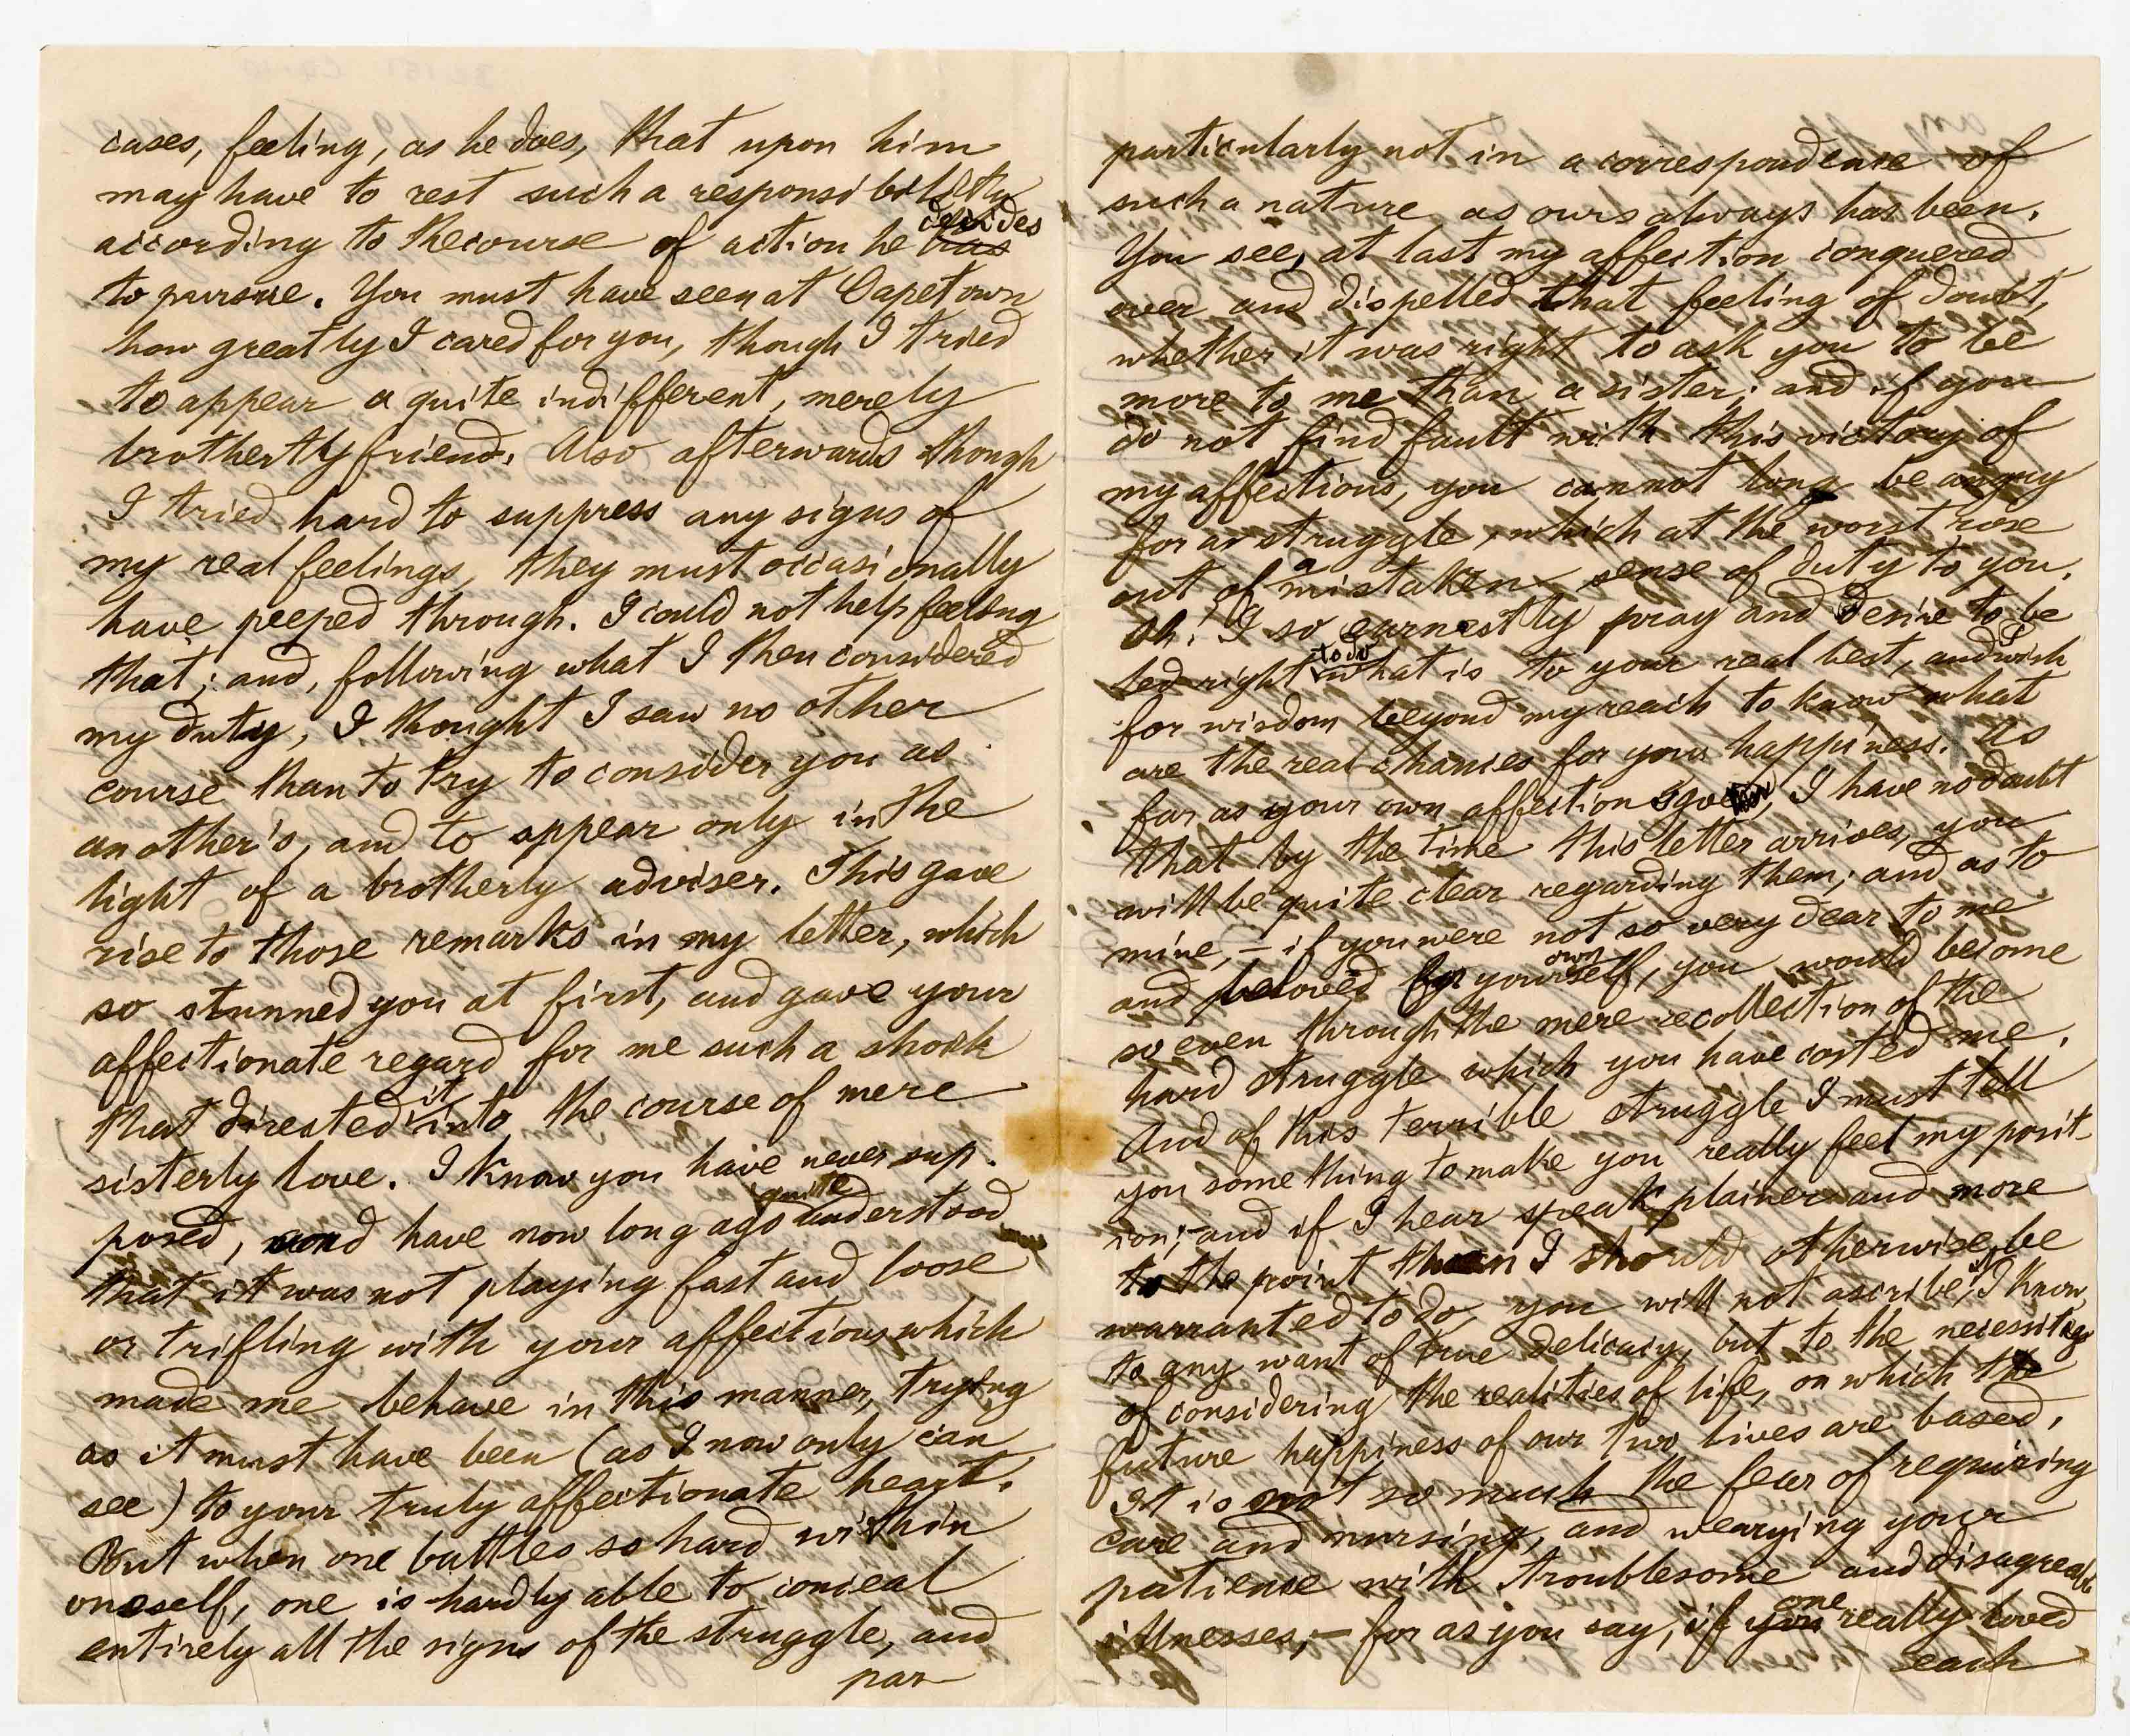 cases, feeling, as he does, that upon him
may have to rest such a responsibility
decides
according to the course of action he has
to pursue. You must have seen at Capetown
how greatly I cared for you, though I tried
to appear a quite indifferent, merely
brotherly friend. Also afterwards though
I tried hard to suppress any signs of
my real feelings, they must occasionally
have peeped through. I could not help feeling
that; and, following what I then considered
my duty, I thought I saw no other
course than to try to consider you as
another's, and to appear only in the
light of a brotherly adviser. This gave
rise to those remarks in my letter, which
so stunned you at first, and gave your
affectionate regard for me such a shock
it
that directed into the course of mere
sisterly love. I know you have never sup-
quite
posed, and have now long ago understood
that it was not playing fast and loose
or trifling with your affections which
made me behave in this manner, trying
as it must have been (as I now only can
see) to your truly affectionate heart.
But when one battles so hard within
oneself, one is hardly able to conceal
entirely all the signs of the struggle, and
par
particularly not in a correspondence of
such a nature as ours always has been.
You see, at last my affection conquered
over and dispelled that feeling of doubt,
whether it was right to ask you to be
more to me than a sister; and if you
do not find fault with this victory of
my affections, you cannot long be angry
for a struggle, which at the worst rose
a
out of mistaken sense of duty to you.
Oh! I so earnestly pray and desire to be
to do I
led right what is to your real best, and wish
for wisdom beyond my reach to know what
are the real chances for your happiness. As
far as your own affections go, I have no doubt
that by the time this letter arrives, you
will be quite clear regarding them; and as to
mine, – if you were not so very dear to me
own
and beloved for yourself, you would become
so even through the mere recollection of the
hard struggle which you have costed me.
And of this terrible struggle I must tell
you something to make you really feel my posit-
ion; – and if I hear speak plainer and more
to the point than I should otherwise be
it
warranted to do, you will not ascribe, I know,
to any want of true delicacy, but to the necessity
of considering the realities of life, on which the
future happiness of our two lives are based.
It is not so much the fear of requiring
care and nursing, and wearying your
patience with troublesome and disagreeable
one
illnesses, – for as you say, if you really loved
each